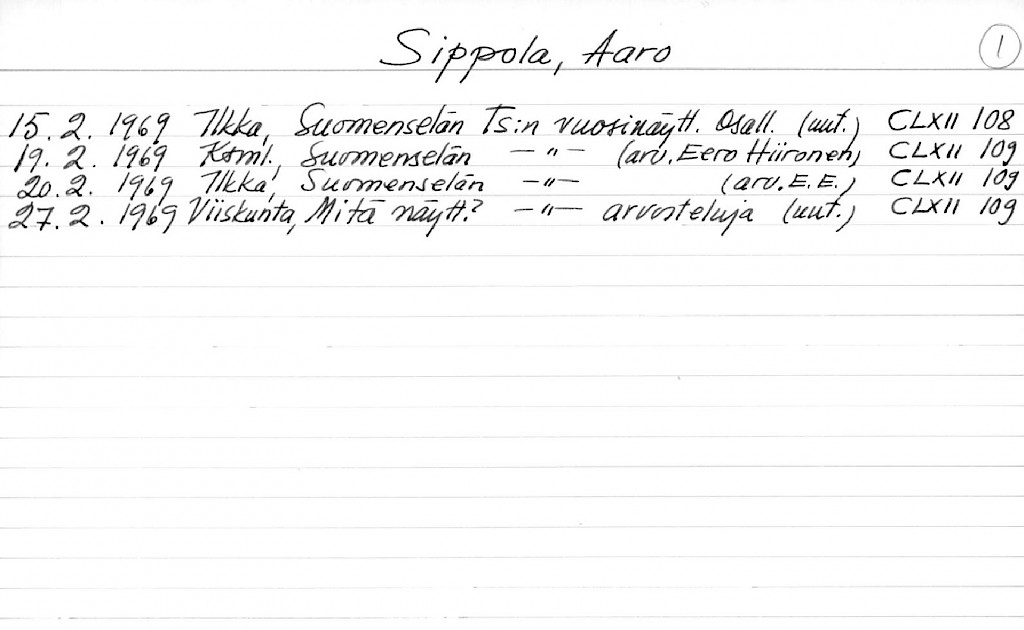 Sippola, Aaro 1
15. 2. 1969 Ilkka, Suomenselän Ts:n vuosinäytt. Osall. (uut.) CLXII 108
19. 2. 1969 Ksml., Suomenselän —"— (arv. Eero Hiironen) CLXII 109
20. 2. 1969 Ilkka, Suomenselän —"— (arv. E. E.) CLXII 109
27. 2. 1969 Viiskunta, Mitä näytt.? —"— arvosteluja (uut.) CLXII 109